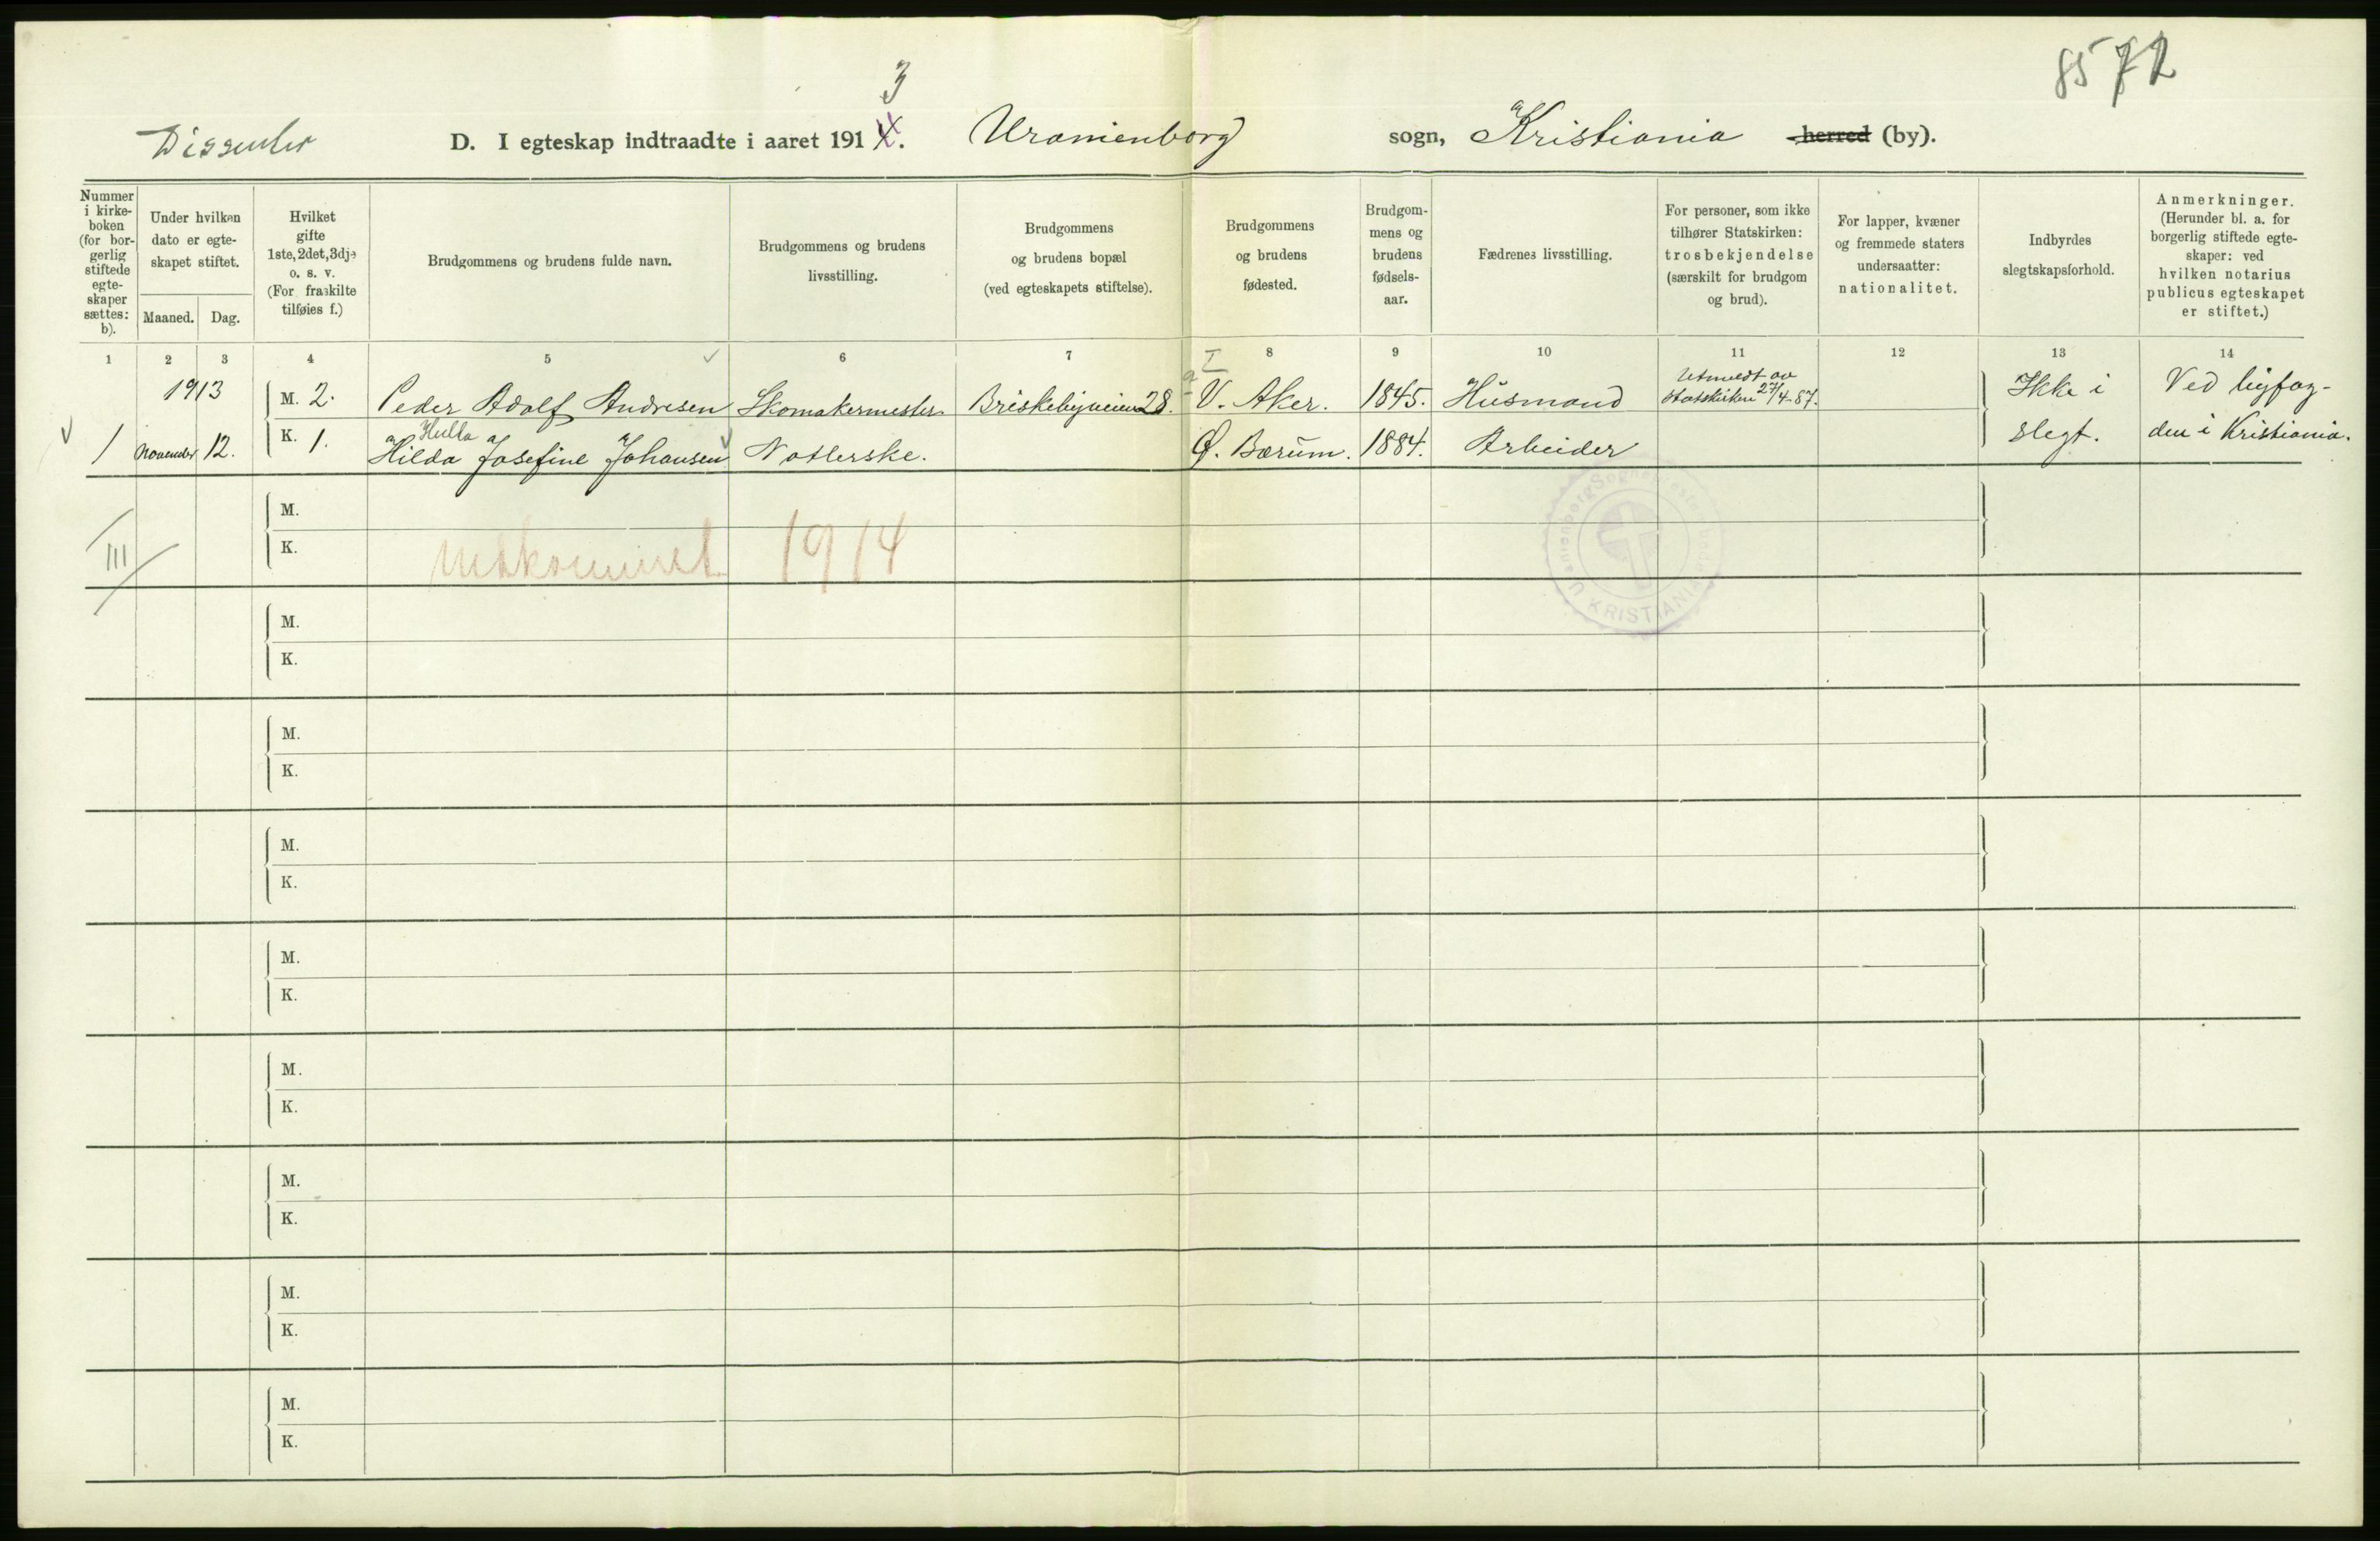 8572
3
Dissenter D. I egteskap indtraadte i aaret 1914. Uranienborg sogn, Kristiania herred (by).
Nummer i kirke-boken (for bor-gerlig stiftede egte-skaper sættes: b).
Under hvilken dato er egte-skapet stiftet.
Maaned. Dag.
Hvilket gifte 1ste, 2det, 3dje o. s. v. (For fraskilte tilføies f.)
Brudgommens og brudens fulde navn.
Brudgommens og brudens livsstilling.
Brudgommens og brudens bopæl (ved egteskapets stiftelse).
Brudgommens og brudens fødested.
Brudgom-mens og brudens fødsels-aar.
Fædrenes livsstilling.
For personer, som ikke tilhører Statskirken: trosbekjendelse (særskilt for brudgom og brud).
For lapper, kvæner og fremmede staters undersaatter: nationalitet.
Indbyrdes slegtskapsforhold.
Anmerkninger. (Herunder bl. a. for borgerlig stiftede egte-skaper: ved hvilken notarius publicus egteskapet er stiftet.)
1 2 3 4 5 6 7 8 9 10 11 12 13 14
1913 M. 2. Peder Adolf Andresen Skomakermester Briskebyveien 28. V. Aker. 1845. Husmand Utmeldt av Statskirken 27/4-87. Ikke i Ved byfog-
1 November 12. K. 1. Hulla Hilda Josefine Johansen Notlerske. Ø. Bærum. 1884. Arbeider slegt. den i Kristiania.
M.
III K. indkommet 1914
Uranienborg Sogneprestembede KRISTIANIA
M.
K.
M.
K.
M.
K.
M.
K.
M.
K.
M.
K.
M.
K.
M.
K.